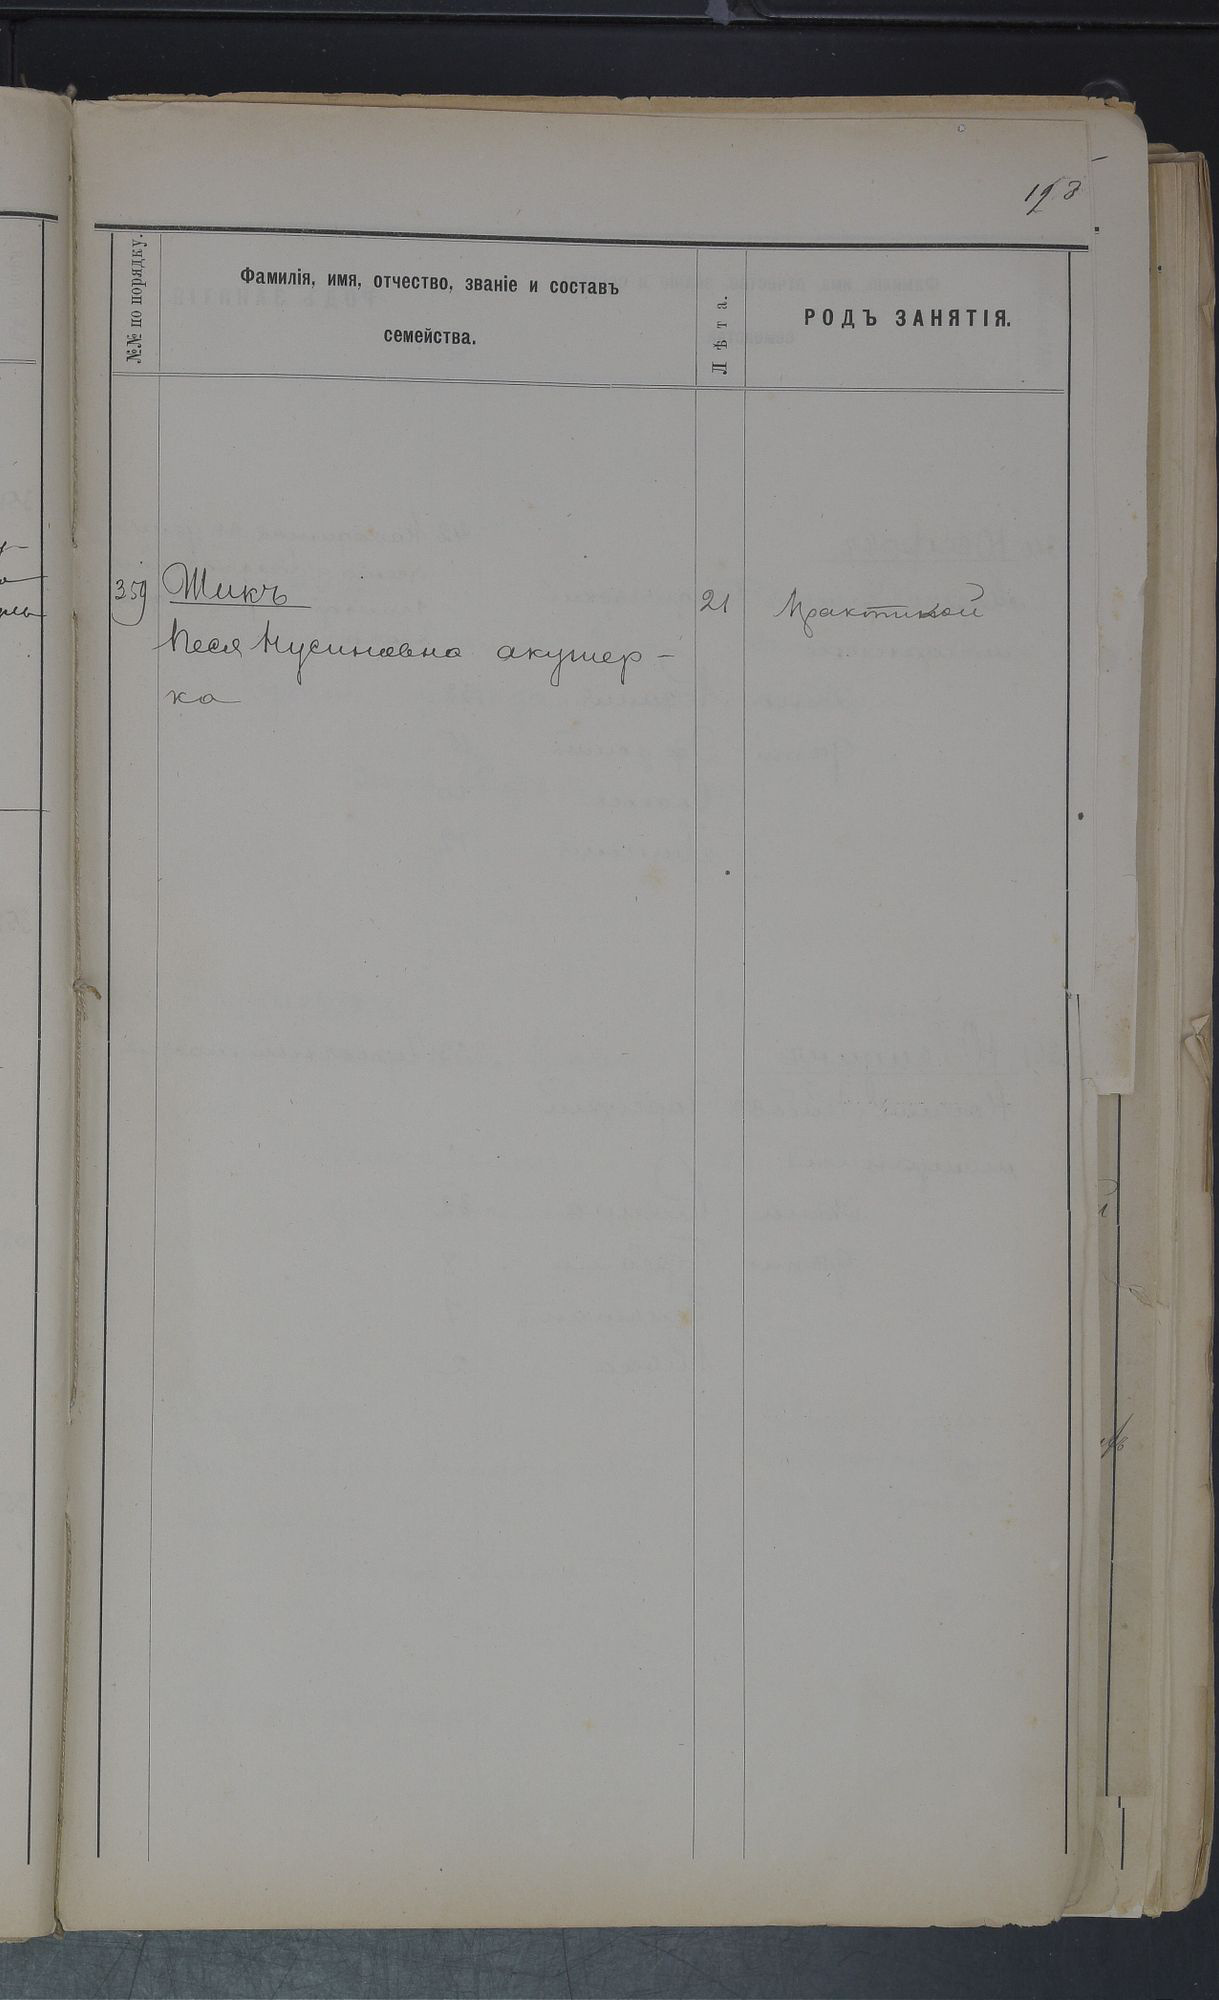 193
№№ по порядку.
Фамилія, имя, отчество, званіе и составъ
семейства.
Лѣта.
РОДЪ ЗАНЯТІЯ.
359
Шикъ
21
Практикой
Песя Нусиновна акушер-
ка